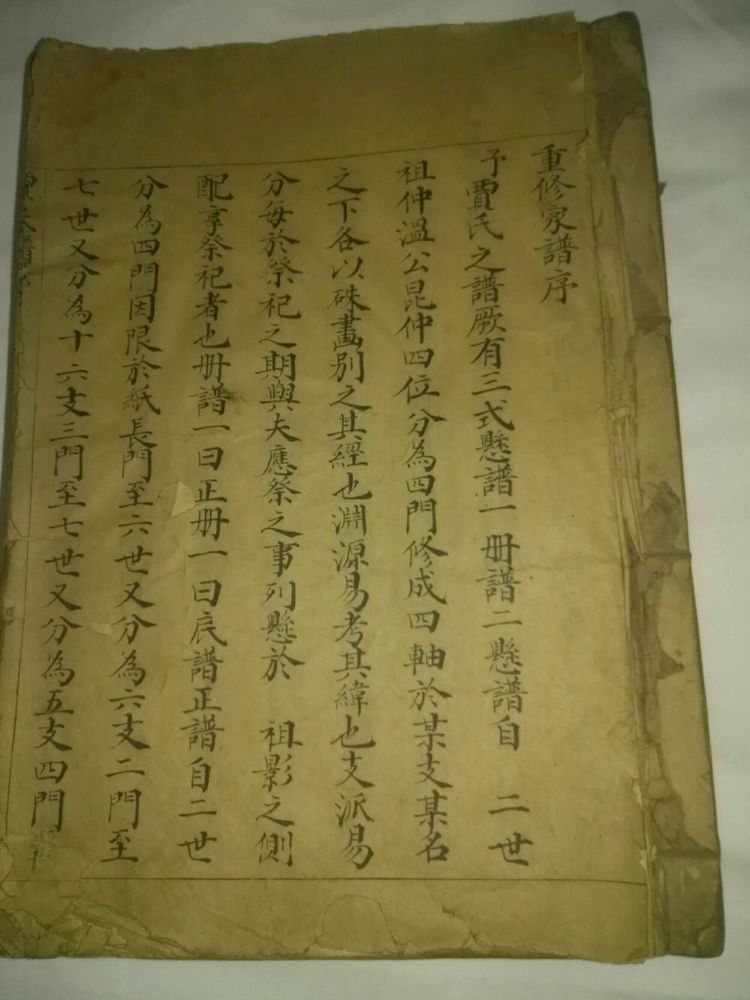 重修家譜序
予賈氏之譜厥有三式懸譜一冊譜二懸譜自 二世
祖仲溫公昆仲四位分為四門修成四軸於某支某名
之下各以硃畫別之其經也淵源易考其緯也支派易
分每於祭祀之期與夫應祭之事列懸於 祖影之側
配享祭祀者也冊譜一曰正冊一曰底譜正譜自二世
分為四門因限於紙長門至六世又分為六支二門至
七世又分為十六支三門至七世又分為五支四門